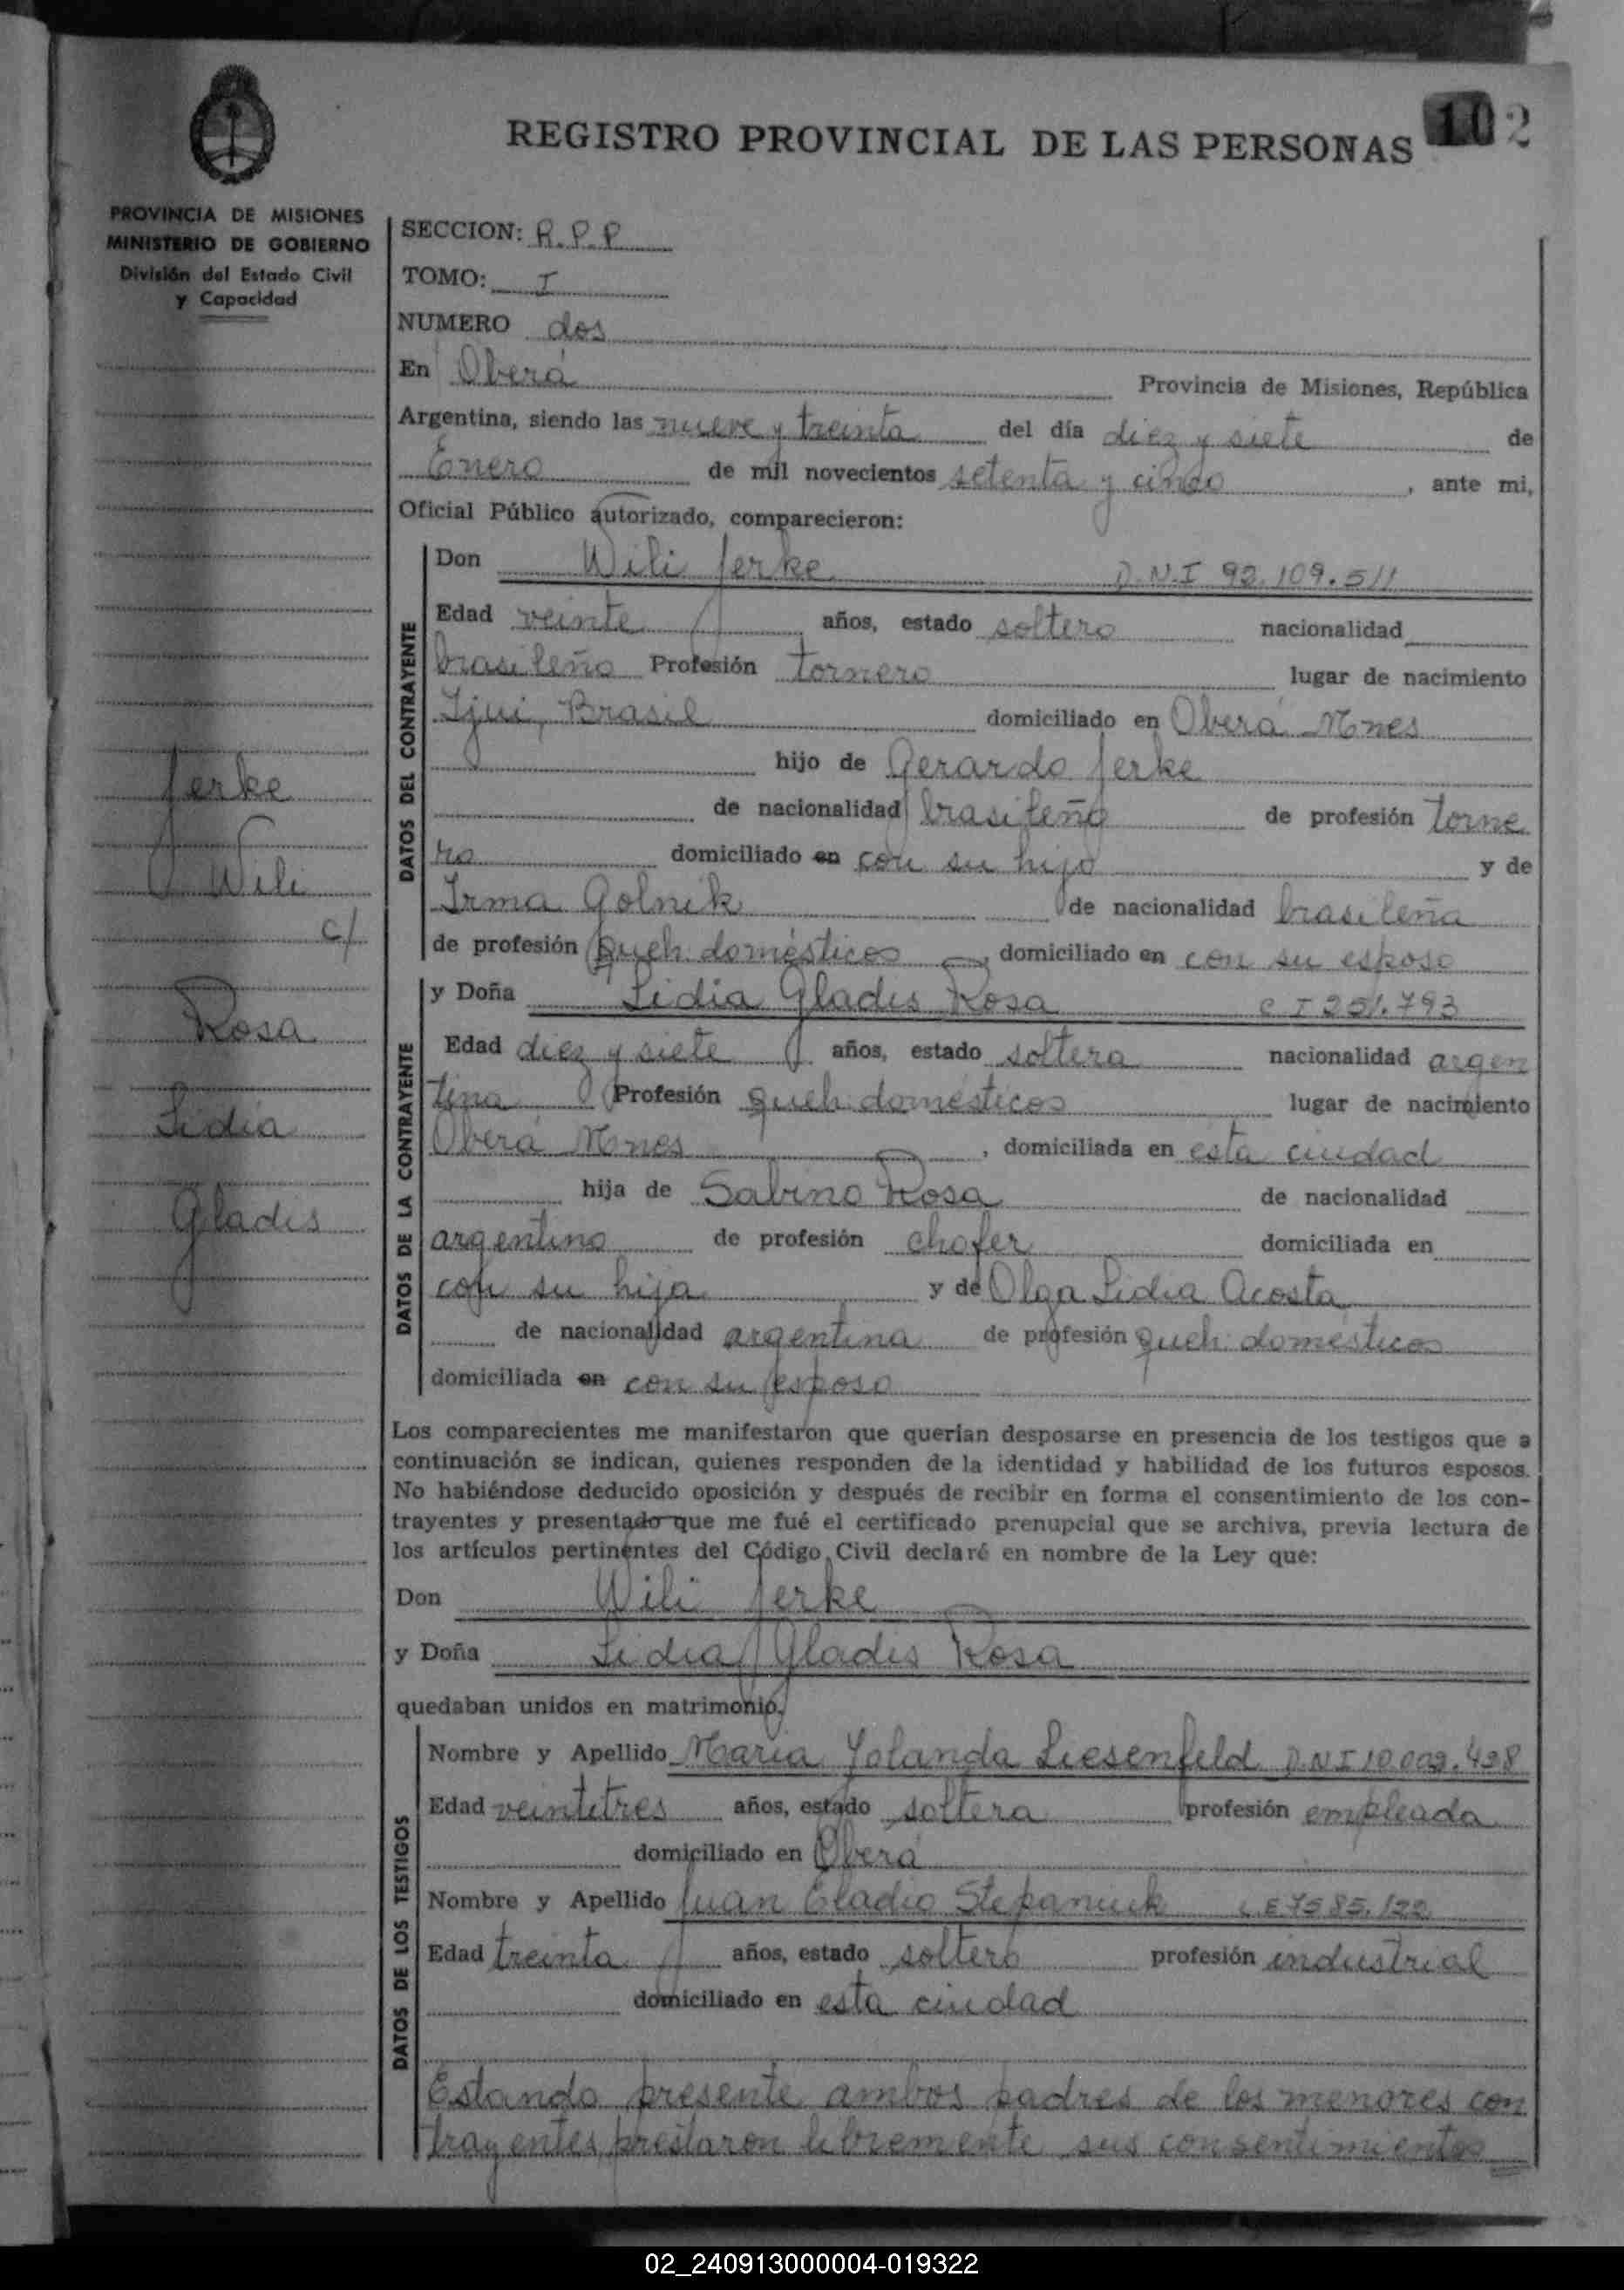 REGISTRO PROVINCIAL DE LAS PERSONAS 102
PROVINCIA DE MISIONES
MINISTERIO DE GOBIERNO
División del Estado Civil
y Capacidad
SECCION: R.P.P
TOMO: I
NUMERO dos
En Oberá Provincia de Misiones, República
Argentina, siendo las nueve y treinta del día diez y siete de
Enero de mil novecientos setenta y cinco, ante mi,
Oficial Público autorizado, comparecieron:
DATOS DEL CONTRAYENTE
Don Wili Jerke D.N.I 92.109.511
Edad veinte años, estado soltero nacionalidad
brasileño Profesión tornero lugar de nacimiento
Ijui, Brasil domiciliado en Oberá Mnes
hijo de Gerardo Jerke
de nacionalidad brasileño de profesión torne
ro domiciliado en con su hijo y de
Irma Golnik de nacionalidad brasileña
de profesión queh. domésticos, domiciliado en con su esposo
DATOS DE LA CONTRAYENTE
y Doña Lidia Gladis Rosa C I 251.793
Edad diez y siete años, estado soltera nacionalidad argen
tina Profesión queh. domésticos lugar de nacimiento
Oberá Mnes, domiciliada en esta ciudad
hija de Sabino Rosa de nacionalidad
argentino de profesión chofer domiciliada en
con su hija y de Olga Lidia Acosta
de nacionalidad argentina de profesión queh. domésticos
domiciliada en con su esposo
Los comparecientes me manifestaron que querían desposarse en presencia de los testigos que a
continuación se indican, quienes responden de la identidad y habilidad de los futuros esposos.
No habiéndose deducido oposición y después de recibir en forma el consentimiento de los con-
trayentes y presentado que me fué el certificado prenupcial que se archiva, previa lectura de
los artículos pertinentes del Código Civil declaré en nombre de la Ley que:
Don Wili Jerke
y Doña Lidia Gladis Rosa
quedaban unidos en matrimonio.
DATOS DE LOS TESTIGOS
Nombre y Apellido Maria Yolanda Liesenfeld D.N.I 10.003.428
Edad veintitres años, estado soltera profesión empleada
domiciliado en Oberá
Nombre y Apellido Juan Eladio Stepaniuk L.E 7585.122
Edad treinta años, estado soltero profesión industrial
domiciliado en esta ciudad
Estando presente ambos padres de los menores con
trayentes, prestaron libremente sus consentimientos
Jerke
Wili
c/
Rosa
Lidia
Gladis
02_240913000004-019322